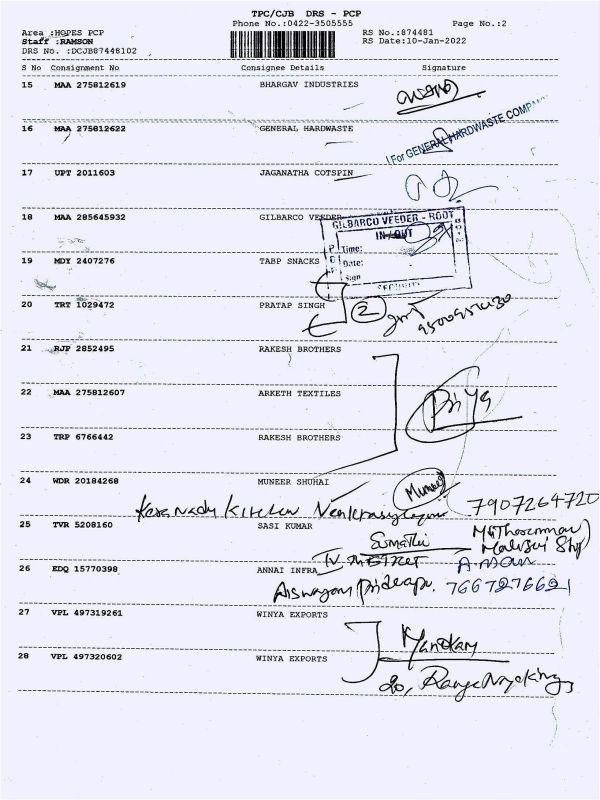 TPC/CJB DRS - PCP
Phone No.:0422-3505555 Page No.:2
Area :HOPES PCP RS No.:874481
Staff :RAMSON RS Date:10-Jan-2022
DRS No. :DCJB87448102
S No Consignment No Consignee Details Signature
15 MAA 275812619 BHARGAV INDUSTRIES
16 MAA 275812622 GENERAL HARDWASTE
For GENERAL HARDWASTE COMPA
17 UPT 2011603 JAGANATHA COTSPIN
18 MAA 285645932 GILBARCO VEEDER
GILBARCO VEEDER - ROOT
IN/OUT
Time:
Date:
Sign
19 MDY 2407276 TABP SNACKS
20 TRT 1029472 PRATAP SINGH
2
21 RJP 2852495 RAKESH BROTHERS
22 MAA 275812607 ARKETH TEXTILES
Priya
23 TRP 6766442 RAKESH BROTHERS
24 WDR 20184268 MUNEER SHUHAI
Muneer
Kitchen 7907264720
25 TVR 5208160 SASI KUMAR
Sumathi
26 EDQ 15770398 ANNAI INFRA
7667276621
27 VPL 497319261 WINYA EXPORTS
28 VPL 497320602 WINYA EXPORTS